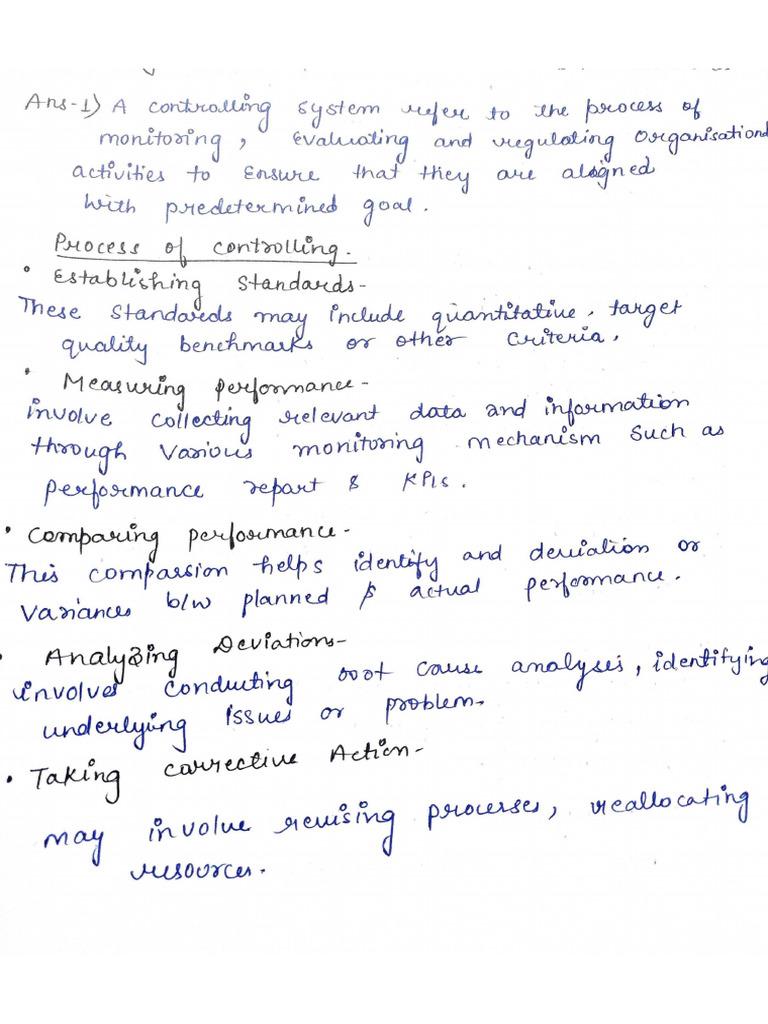 Ans-1) A controlling system refer to the process of
monitoring, evaluating and regulating organisational
activities to ensure that they are aligned
with predetermined goal.
Process of controlling.
• Establishing standards-
These standards may include quantitative, target
quality benchmarks or other criteria.
• Measuring performance-
involve collecting relevant data and information
through various monitoring mechanism such as
performance report & KPIs.
• Comparing performance-
This comparssion helps identify and deviation or
variances b/w planned & actual performance.
• Analyzing Deviations-
involves conducting root cause analyses, identifying
underlying issues or problem.
• Taking corrective Action-
may involve revising processes, reallocating
resources.